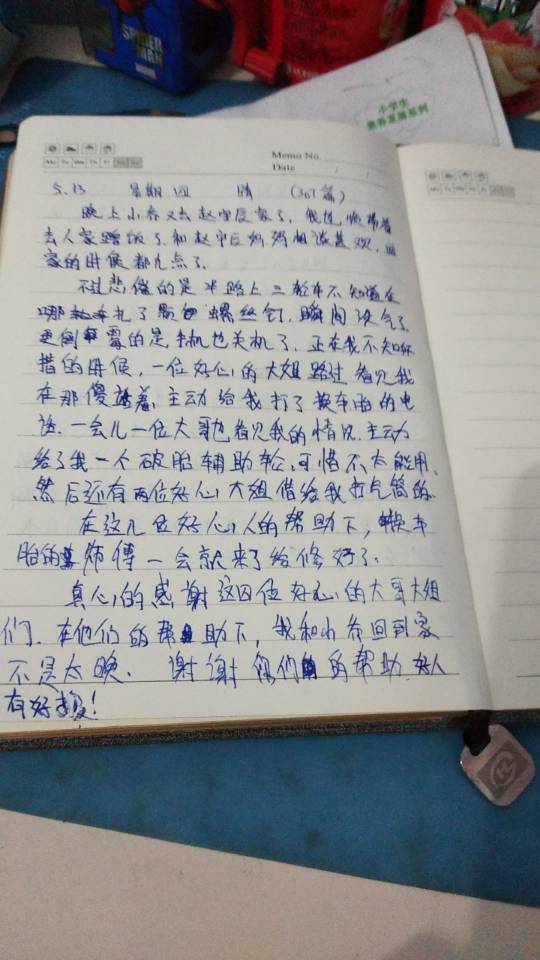 SPIDER MAN
小学生
素养发展系列
Memo No.
Mo Tu We Th Fr Sa Su
Date / /
5.13 星期四 晴 (307篇)
晚上小乔又去赵宇辰家了，我也顺带着
去人家蹭饭了.和赵宇辰妈妈相谈甚欢，回
家的时候都九点了.
不过悲催的是半路上三轮车不知道在
哪扎了螺丝钉.瞬间没气了.
更倒霉的是手机也关机了.正在我不知所
措的时候，一位好心的大姐路过看见我
在那傻站着.主动给我打了换车胎的电
话.一会儿一位大哥也看见我的情况.主动
给了我一个破胎辅助轮，可惜不太能用.
然后还有两位好心大姐借给我打气筒的.
在这几位好心人的帮助下，换车
胎的师傅一会就来了给修好了.
真心的感谢这四位好心的大哥大姐
们.在他们的帮助下，我和小乔回到家
不是太晚.谢谢你们的帮助.好人
有好报!